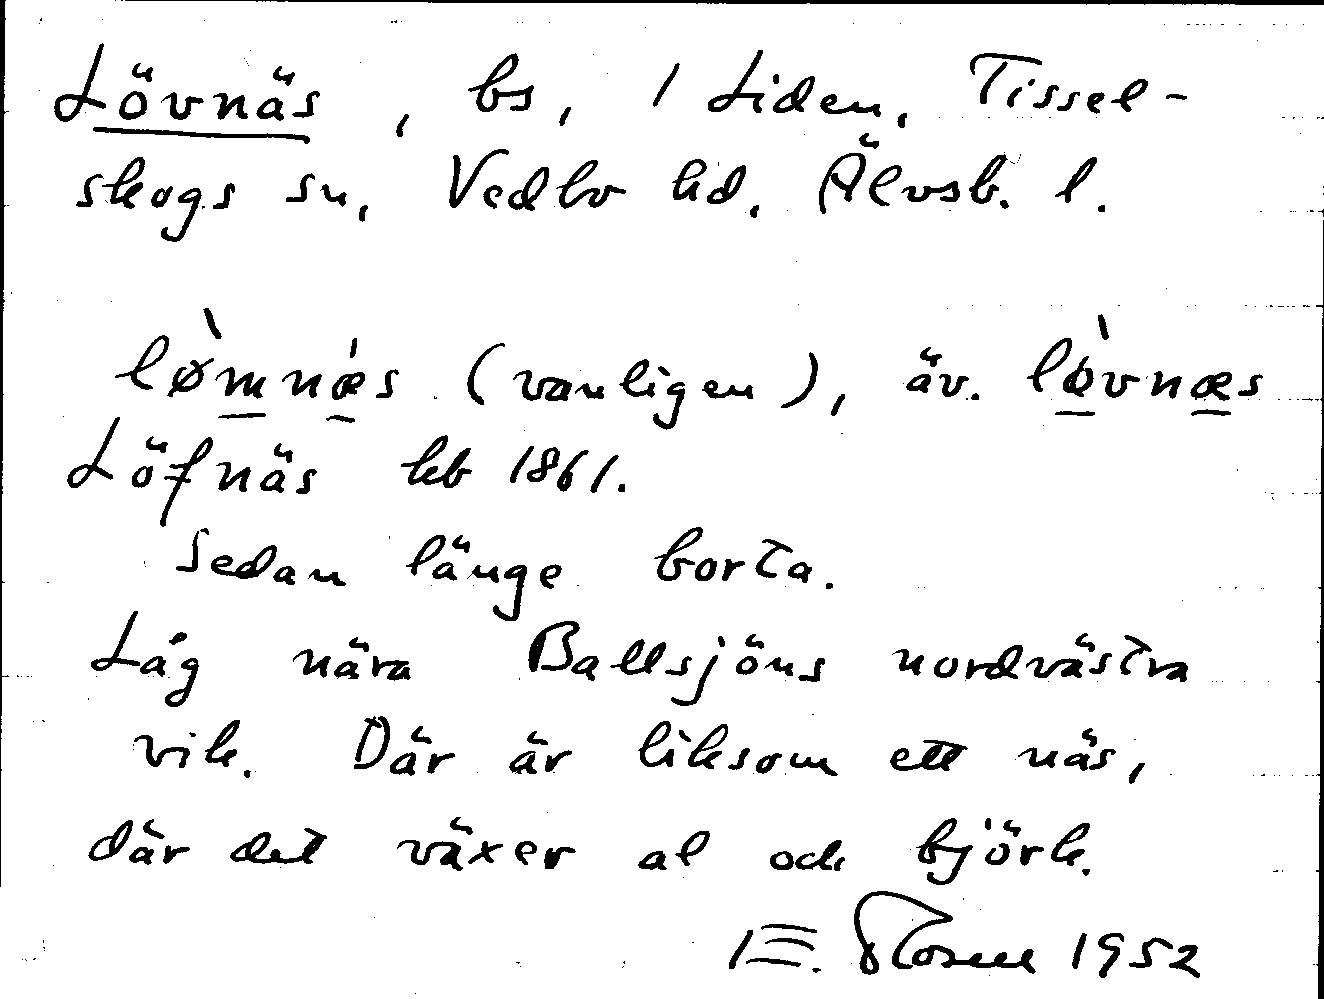 Lövnäs, bs, 1 Liden, Tissel-
skogs sn, Vedbo hd, Älvsb. l.
lø̀mnæ̍s (vanligen), äv. lø̀vnæs
Löfnäs kb 1861.
Sedan länge borta.
Låg nära Ballsjöns nordvästra
vik. Där är liksom ett näs,
där det växer al och björk.
E. 1952